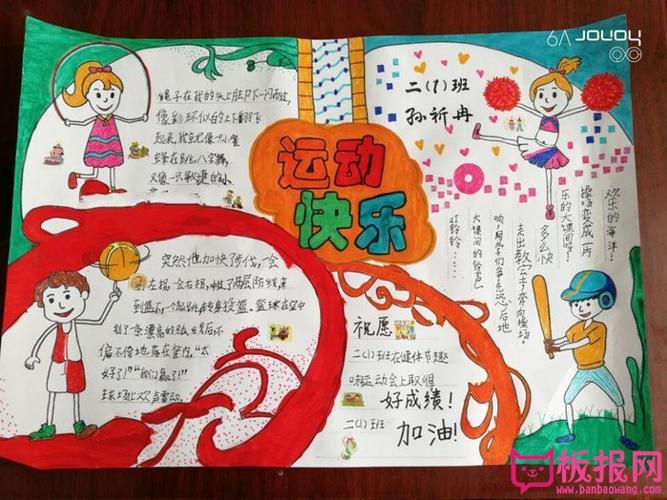 绳子在我的头上脚下一闪而过,
像彩环似的上下翻飞
起来,我就像一只小蜜
蜂在跳八字舞,
又像一只敏捷的小
运动
快乐
6A JOVOY
二(1)班
孙祈冉
欢乐的海洋!
操场变成一片
乐的大课间呀!
多么快
走出教室,奔向操场。
哟!同学们争先恐后地
大课间的铃声
叮铃铃……
突然他加快了步伐,一会
左拐,一会右拐,
到篮下,一个起跳,转身投篮,篮球在空中
划了一条漂亮的弧线,最后
偏不倚地落在筐内。"太
好了!""我们赢了!"
球场上欢声雷动。
祝愿
二(1)班在健体节趣
味运动会上取得
好成绩!
二(1)班
加油!
板报网
www.banbaowang.com